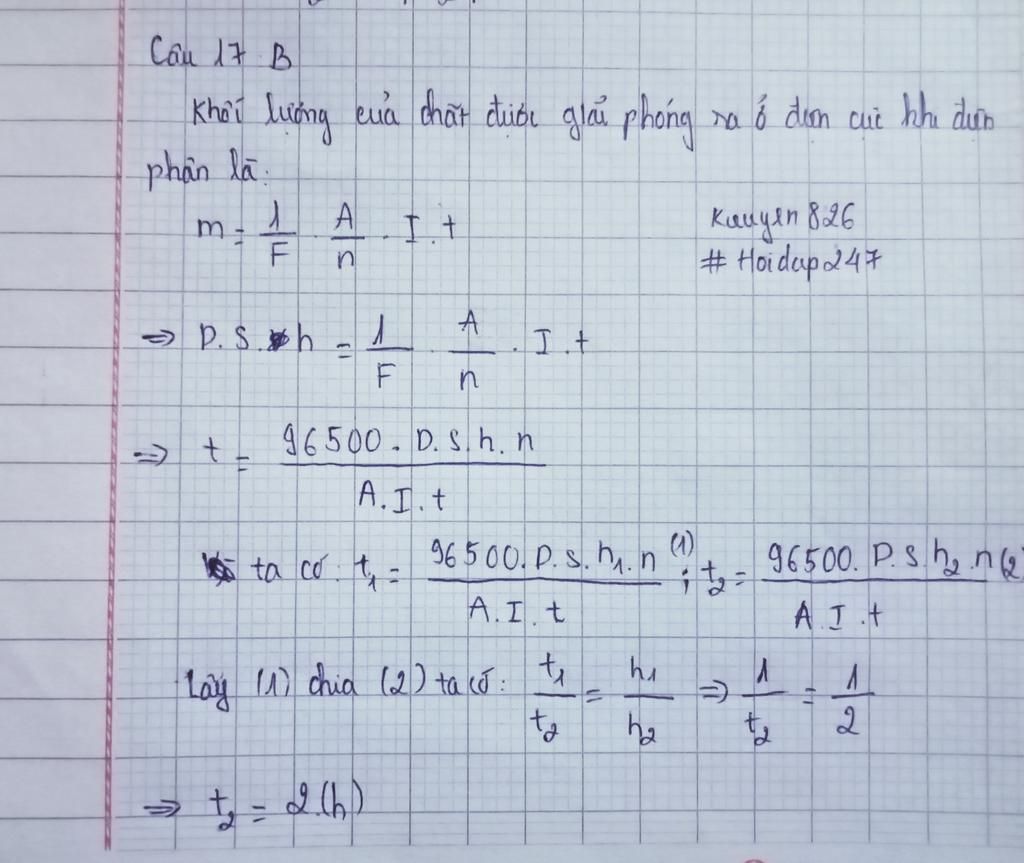 Câu 17 B
Khối lượng của chất được giải phóng ra ở điện cực khi điện
phân là:
m = 1/F . A/n . I.t
Kauyen826
# Hoidap247
=> D.S.h = 1/F . A/n . I.t
=> t = 96500.D.S.h.n / A.I.t
ta có: t₁ = 96500.D.S.h₁.n / A.I.t (1) ; t₂ = 96500.D.S.h₂.n / A.I.t (2)
Lấy (1) chia (2) ta có: t₁/t₂ = h₁/h₂ => 1/t₂ = 1/2
=> t₂ = 2(h)